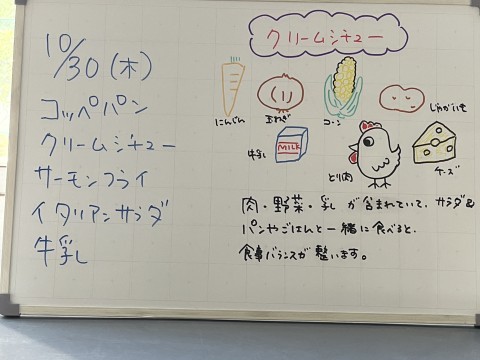 10/30(木)
コッペパン
クリームシチュー
サーモンフライ
イタリアンサラダ
牛乳
クリームシチュー
にんじん
玉ねぎ
コーン
じゃがいも
牛乳
MILK
とり肉
チーズ
肉・野菜・乳が含まれていて、サラダ&
パンやごはんと一緒に食べると、
食事バランスが整います。